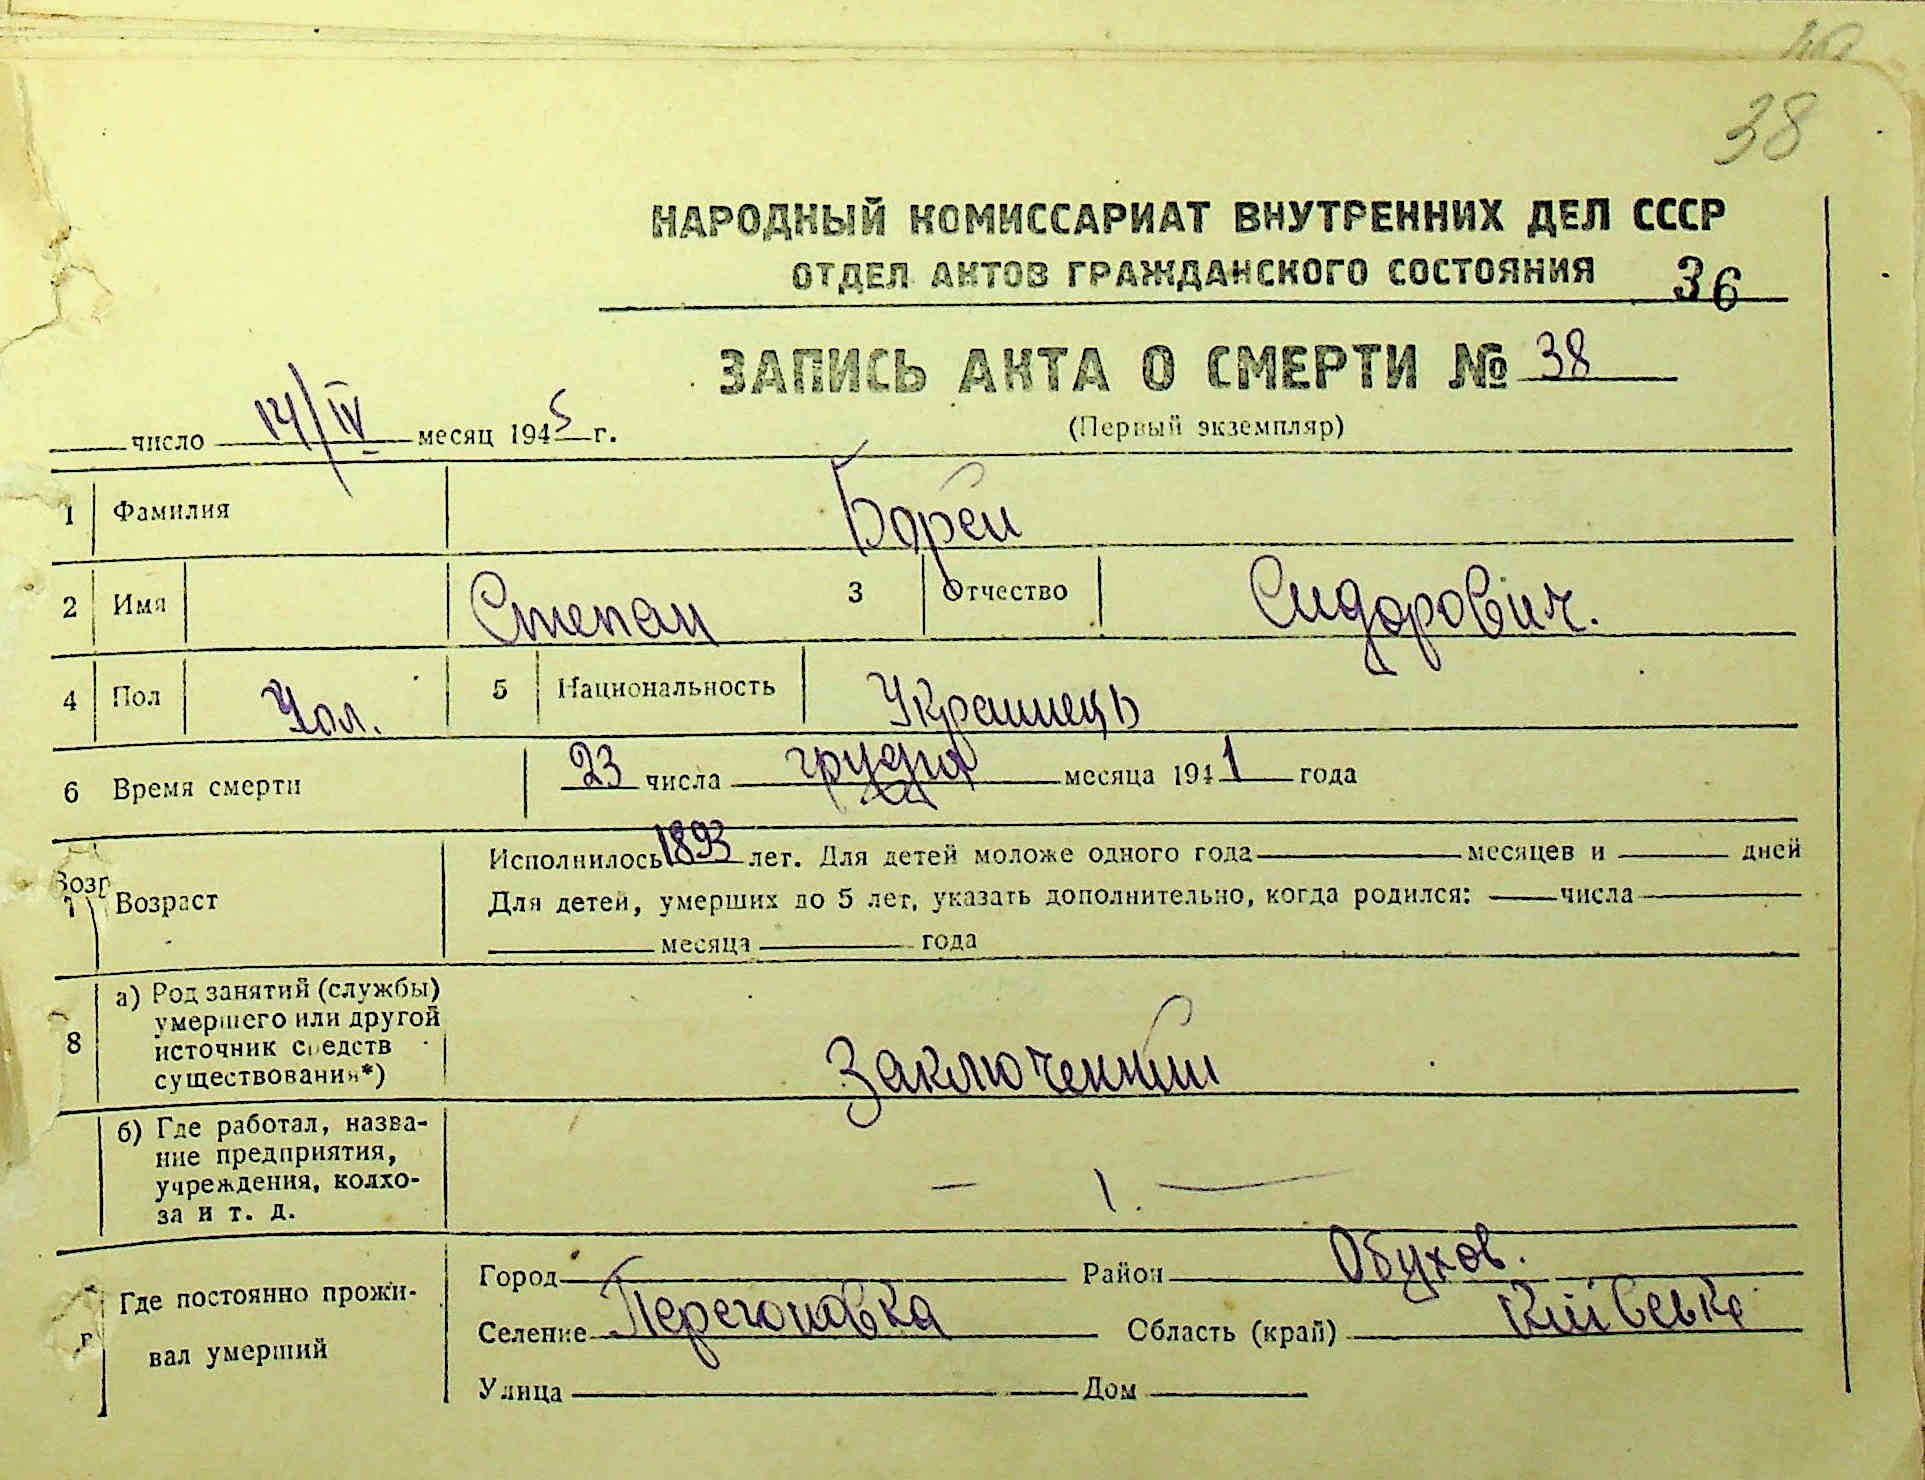 38
НАРОДНЫЙ КОМИССАРИАТ ВНУТРЕННИХ ДЕЛ СССР
ОТДЕЛ АКТОВ ГРАЖДАНСКОГО СОСТОЯНИЯ 36
ЗАПИСЬ АКТА О СМЕРТИ № 38
(Первый экземпляр)
число 14/IV месяц 1945 г.
1 Фамилия Борей
2 Имя Степан 3 Отчество Сидорович.
4 Пол Чол. 5 Национальность Украинець
6 Время смерти 23 числа грудня месяца 1941 года
Возр
7 Возраст Исполнилось 1893 лет. Для детей моложе одного года месяцев и дней
Для детей, умерших до 5 лет, указать дополнительно, когда родился: числа
месяца года
8 а) Род занятий (службы)
умершего или другой
источник средств
существования*) Заключенный
б) Где работал, назва-
ние предприятия,
учреждения, колхо-
за и т. д. — 1. —
Где постоянно прожи-
вал умерший
Город Район Обухов.
Селение Перегоновка Область (край) Київська
Улица Дом